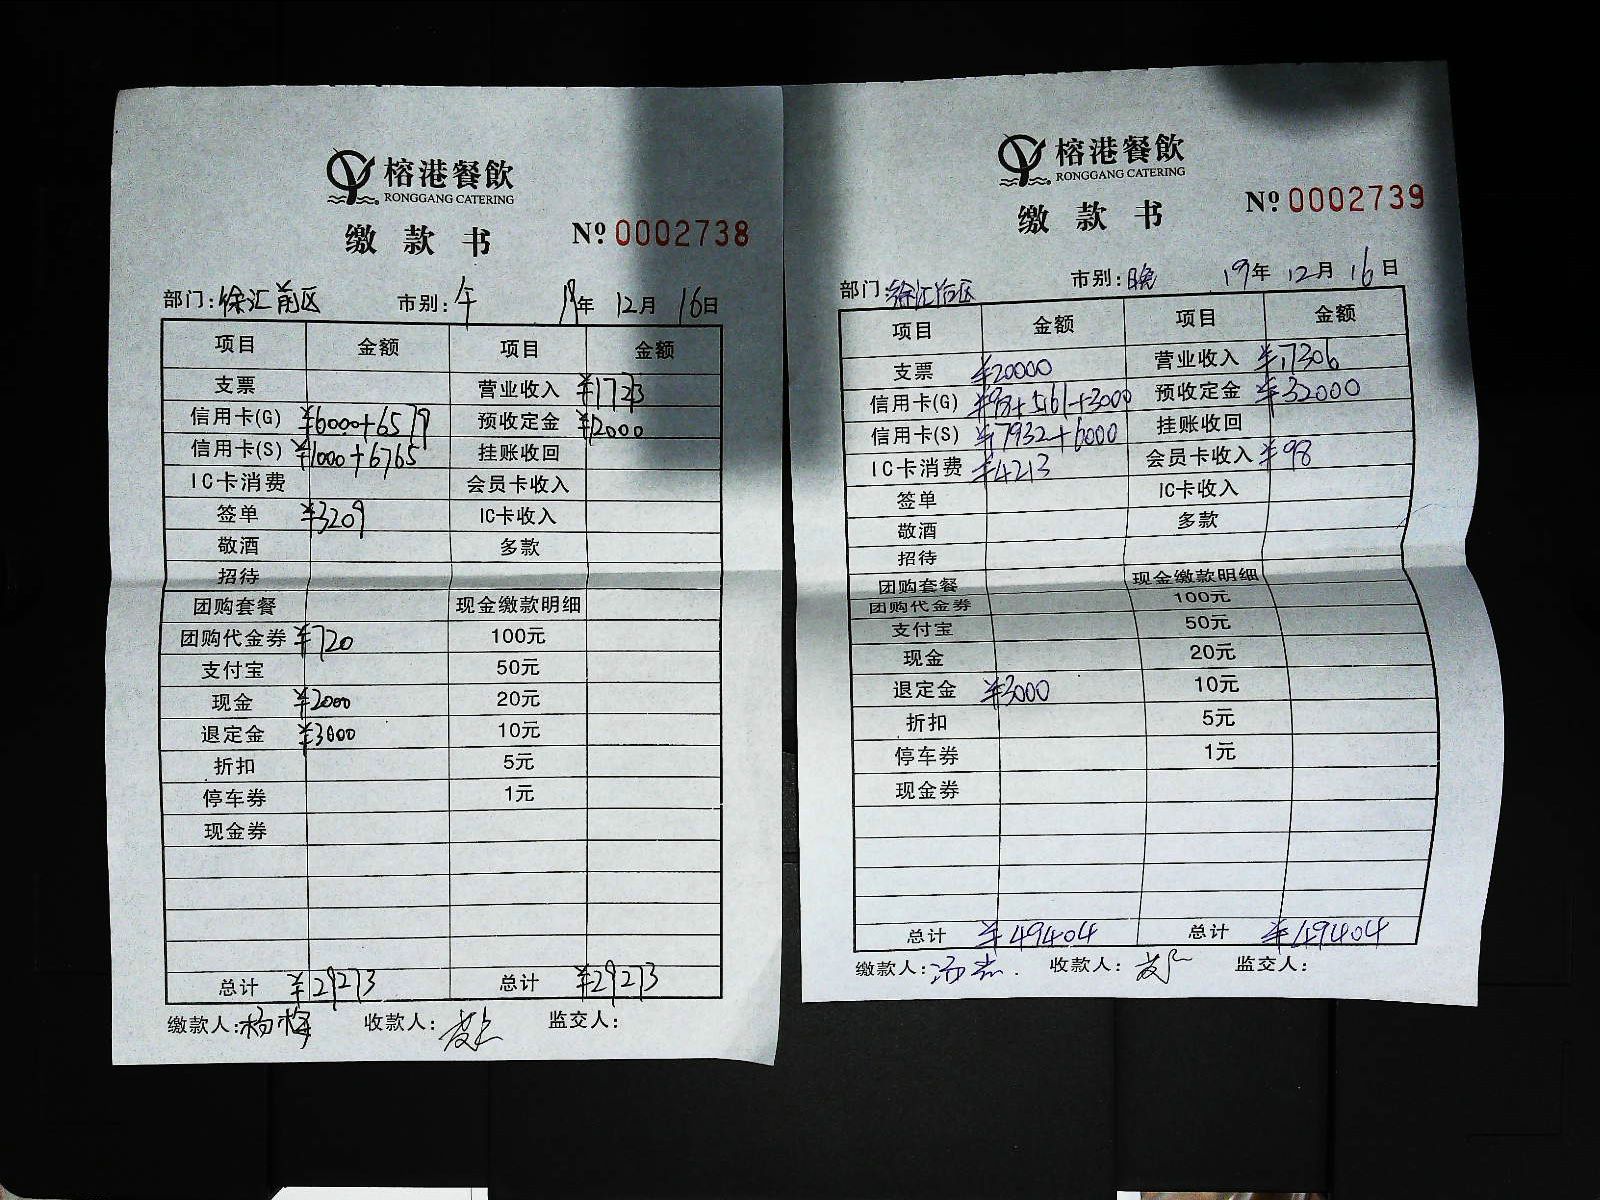 榕港餐飲
RONGGANG CATERING
缴款书 Nº 0002738
部门:徐汇前区 市别:午 19年 12月 16日
项目 金额 项目 金额
支票 营业收入 ¥17273
信用卡(G) ¥6000+6579 预收定金 ¥12000
信用卡(S) ¥1000+6765 挂账收回
IC卡消费 会员卡收入
签单 ¥3209 IC卡收入
敬酒 多款
招待
团购套餐 现金缴款明细
团购代金券 ¥720 100元
支付宝 50元
现金 ¥2000 20元
退定金 ¥3000 10元
折扣 5元
停车券 1元
现金券
总计 ¥29273 总计 ¥29273
缴款人:杨梅 收款人: 监交人:
榕港餐飲
RONGGANG CATERING
缴款书 Nº 0002739
部门:徐汇后区 市别:晚 19年 12月 16日
项目 金额 项目 金额
支票 ¥20000 营业收入 ¥17306
信用卡(G) ¥98+5161+3000 预收定金 ¥32000
信用卡(S) ¥7932+6000 挂账收回
IC卡消费 ¥4213 会员卡收入 ¥98
签单 IC卡收入
敬酒 多款
招待
团购套餐 现金缴款明细
团购代金券 100元
支付宝 50元
现金 20元
退定金 ¥3000 10元
折扣 5元
停车券 1元
现金券
总计 ¥49404 总计 ¥49404
缴款人: 收款人: 监交人: